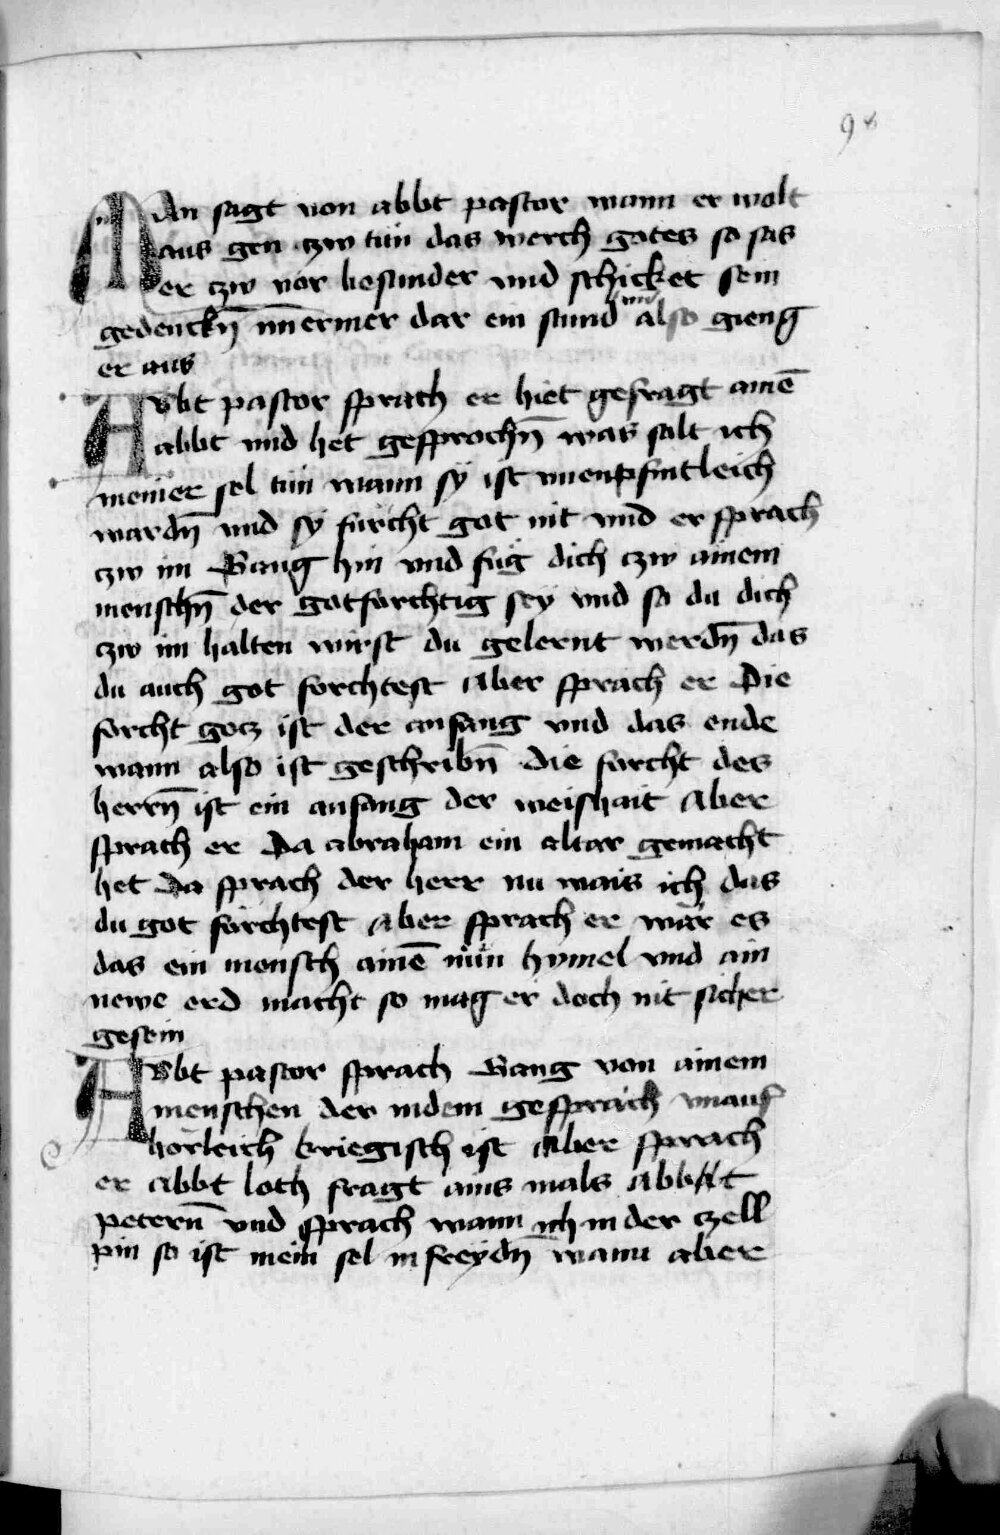 98
Man sagt von abbt pastor wann er wolt
aus gen czw tün das werch gotes so sas
er czw vor besunder vnd schicket sein
gedenckn̄ im̄ermer dar ein stund vnd also gieng
er aus
Abbt pastor sprach er hiet gefragt ainē
abbt vnd het gesprochn̄ was solt ich
meiner sel tün wann sy ist vnenpfintleich
wordn̄ vnd sy furcht got nit vnd er sprach
czw im Gang hin vnd fug dich czw ainem
menschn̄ der gotforchtig sey vnd so du dich
czw im halten wirst du gelernt werdn̄ das
du auch got forchtest Aber sprach er Die
forcht gotz ist der anfang vnd das ende
wann also ist geschribn̄ die forcht des
herrn̄ ist ein anfang der weishait Aber
sprach er Da abraham ein altar gemacht
het Da sprach der herr nu wais ich das
du got förchtest Aber sprach er wär es
das ein mensch ainē nün hymel vnd ain
newe erd macht so mag er doch nit sicher
gesein
Abbt pastor sprach Gang von ainem
menschen der in dem gespräch vnauf
horleich kriegisch ist Aber sprach
er abbt loth fragt ains mals abbt
petern̄ vnd sprach wann ich in der czell
pin so ist mein sel in freydn̄ wann aber